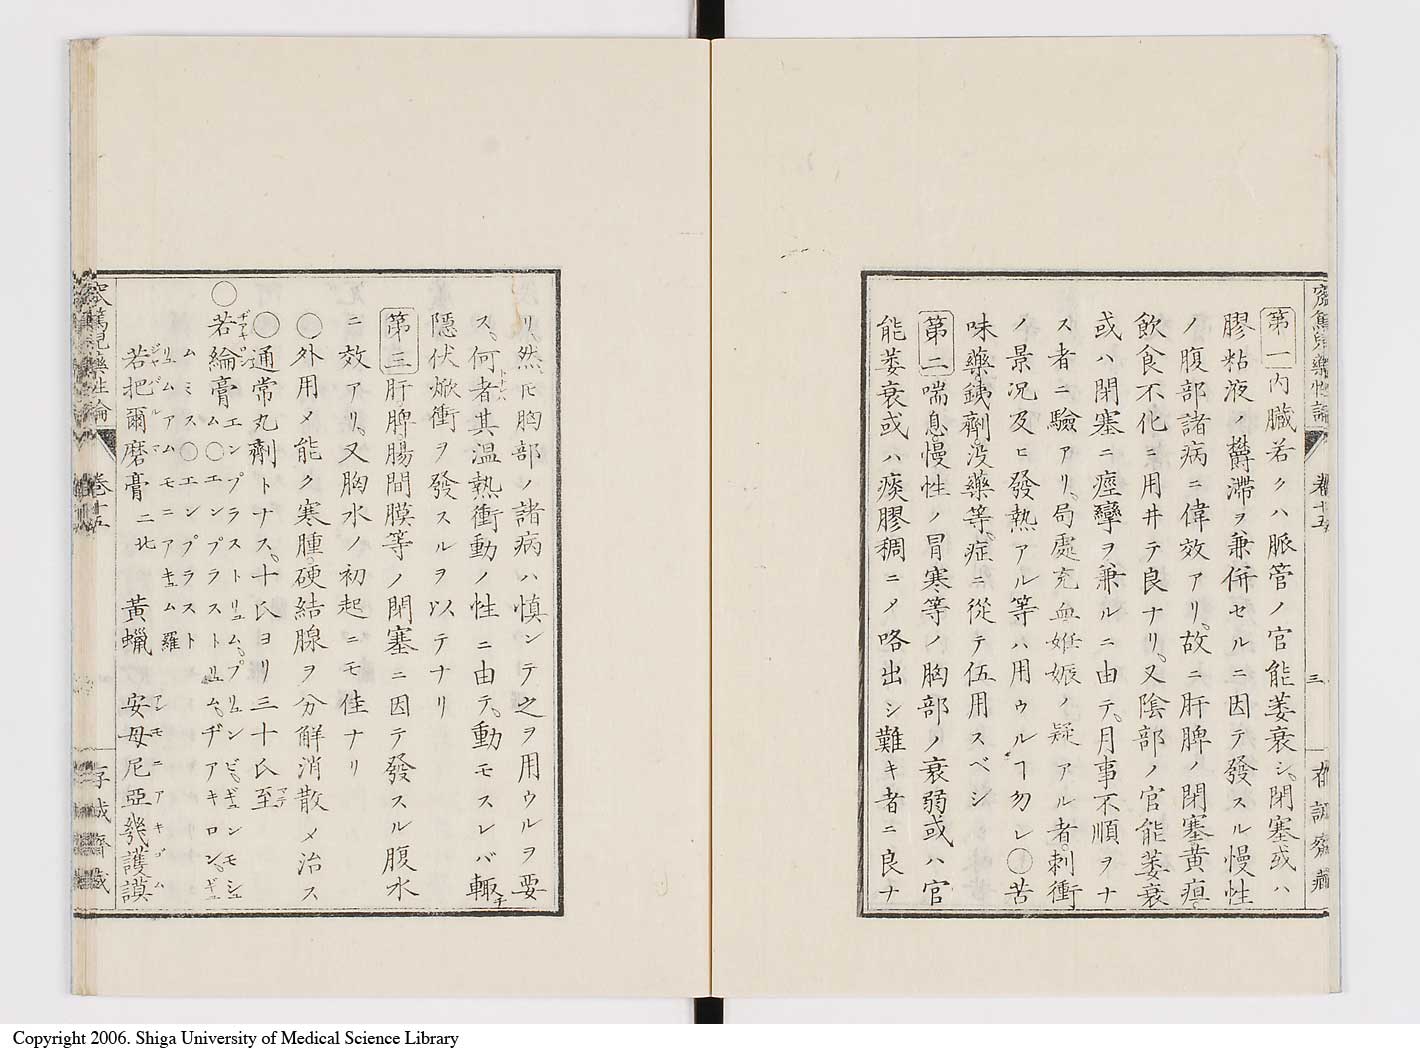 第一内臓若クハ脈管ノ官能萎衰シ、閉塞或ハ
膠粘液ノ欝滞ヲ兼併セルニ因テ發スル慢性
ノ腹部諸病ニ偉效アリ、故ニ肝脾ノ閉塞黄疸、
飲食不化ニ用井テ良ナリ、又陰部ノ官能萎衰
或ハ閉塞ニ痙攣ヲ兼ルニ由テ、月事不順ヲナ
ス者ニ驗アリ、局處充血妊娠ノ疑アル者、刺衝
ノ景況及ヒ發熱アル等ハ用ウルヿ勿レ○苦
味藥銕劑没藥等、症ニ從テ伍用スベシ
第二喘息、慢性ノ冒寒等ノ胸部ノ衰弱或ハ官
能萎衰或ハ痰膠稠ニメ咯出シ難キ者ニ良ナ
卷十五
三
存誠齋藏
リ、然𪜈胸部ノ諸病ハ慎ンテ之ヲ用ウルヲ要
ス、何者其温熱衝動ノ性ニ由テ、動モスレバ輙チ
隠伏焮衝ヲ發スルヲ以テナリ
第三肝脾腸間膜等ノ閉塞ニ因テ發スル腹水
ニ效アリ、又胸水ノ初起ニモ佳ナリ
○外用メ能ク寒腫、硬結腺ヲ分解消散メ治ス
○通常丸劑トナス、十氏ヨリ三十氏至マテ
○若綸膏ヂアキロンム○エンプラストリュム、プリュンビ、ギュンモシュ
ム○エンプラストリュム、ヂアキロン、ギュ
ムミス○エンプラスト
リュムアムモニアキュム羅
若把爾磨膏二北 黃蠟 安母尼亞幾護謨
ジャパルマ アンモニアキゴム
窊篤兒藥性論
卷十五
存誠齋藏